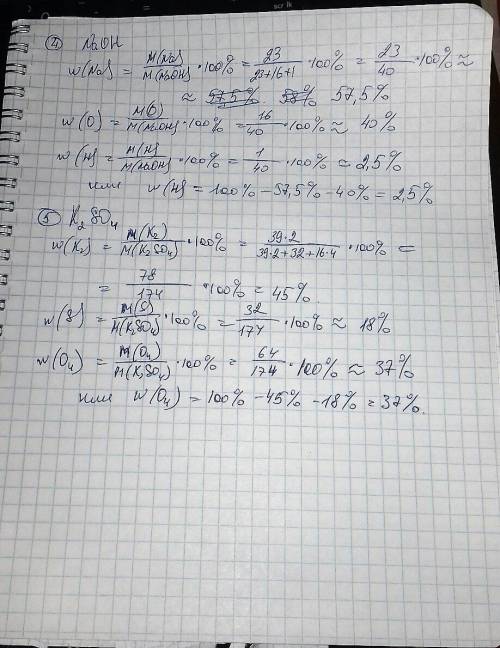 ④ NaOH
w(Na) = M(Na)/M(NaOH) · 100% = 23/23+16+1 · 100% = 23/40 · 100% ≈
≈ 57,5% 58% 57,5%
w(O) = M(O)/M(NaOH) · 100% = 16/40 · 100% ≈ 40%
w(H) = M(H)/M(NaOH) · 100% = 1/40 · 100% = 2,5%
или w(H) = 100% - 57,5% - 40% = 2,5%
⑤ K₂SO₄
w(K₂) = M(K₂)/M(K₂SO₄) · 100% = 39·2/39·2+32+16·4 · 100% =
= 78/174 · 100% = 45%.
w(S) = M(S)/M(K₂SO₄) · 100% = 32/174 · 100% ≈ 18%
w(O₄) = M(O₄)/M(K₂SO₄) · 100% = 64/174 · 100% ≈ 37%
или w(O₄) = 100% - 45% - 18% = 37%.